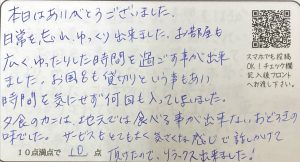 本日はありがとうございました。
日常を忘れ、ゆっくり出来ました。お部屋も
広く、ゆったりした時間を過ごす事が出来
ました。お風呂も貸切りという事もあり
時間を気にせず何回も入ってしまいました。
夕食のカニは、地元では食べる事が出来ない、おどろきの
味でした。サービスもとてもよく気さくな感じで話しかけて
頂けたので、リラックス出来ました!
10点満点で 10 点
スマホでも投稿
OK!チェック欄
記入後フロント
へお渡し下さい。